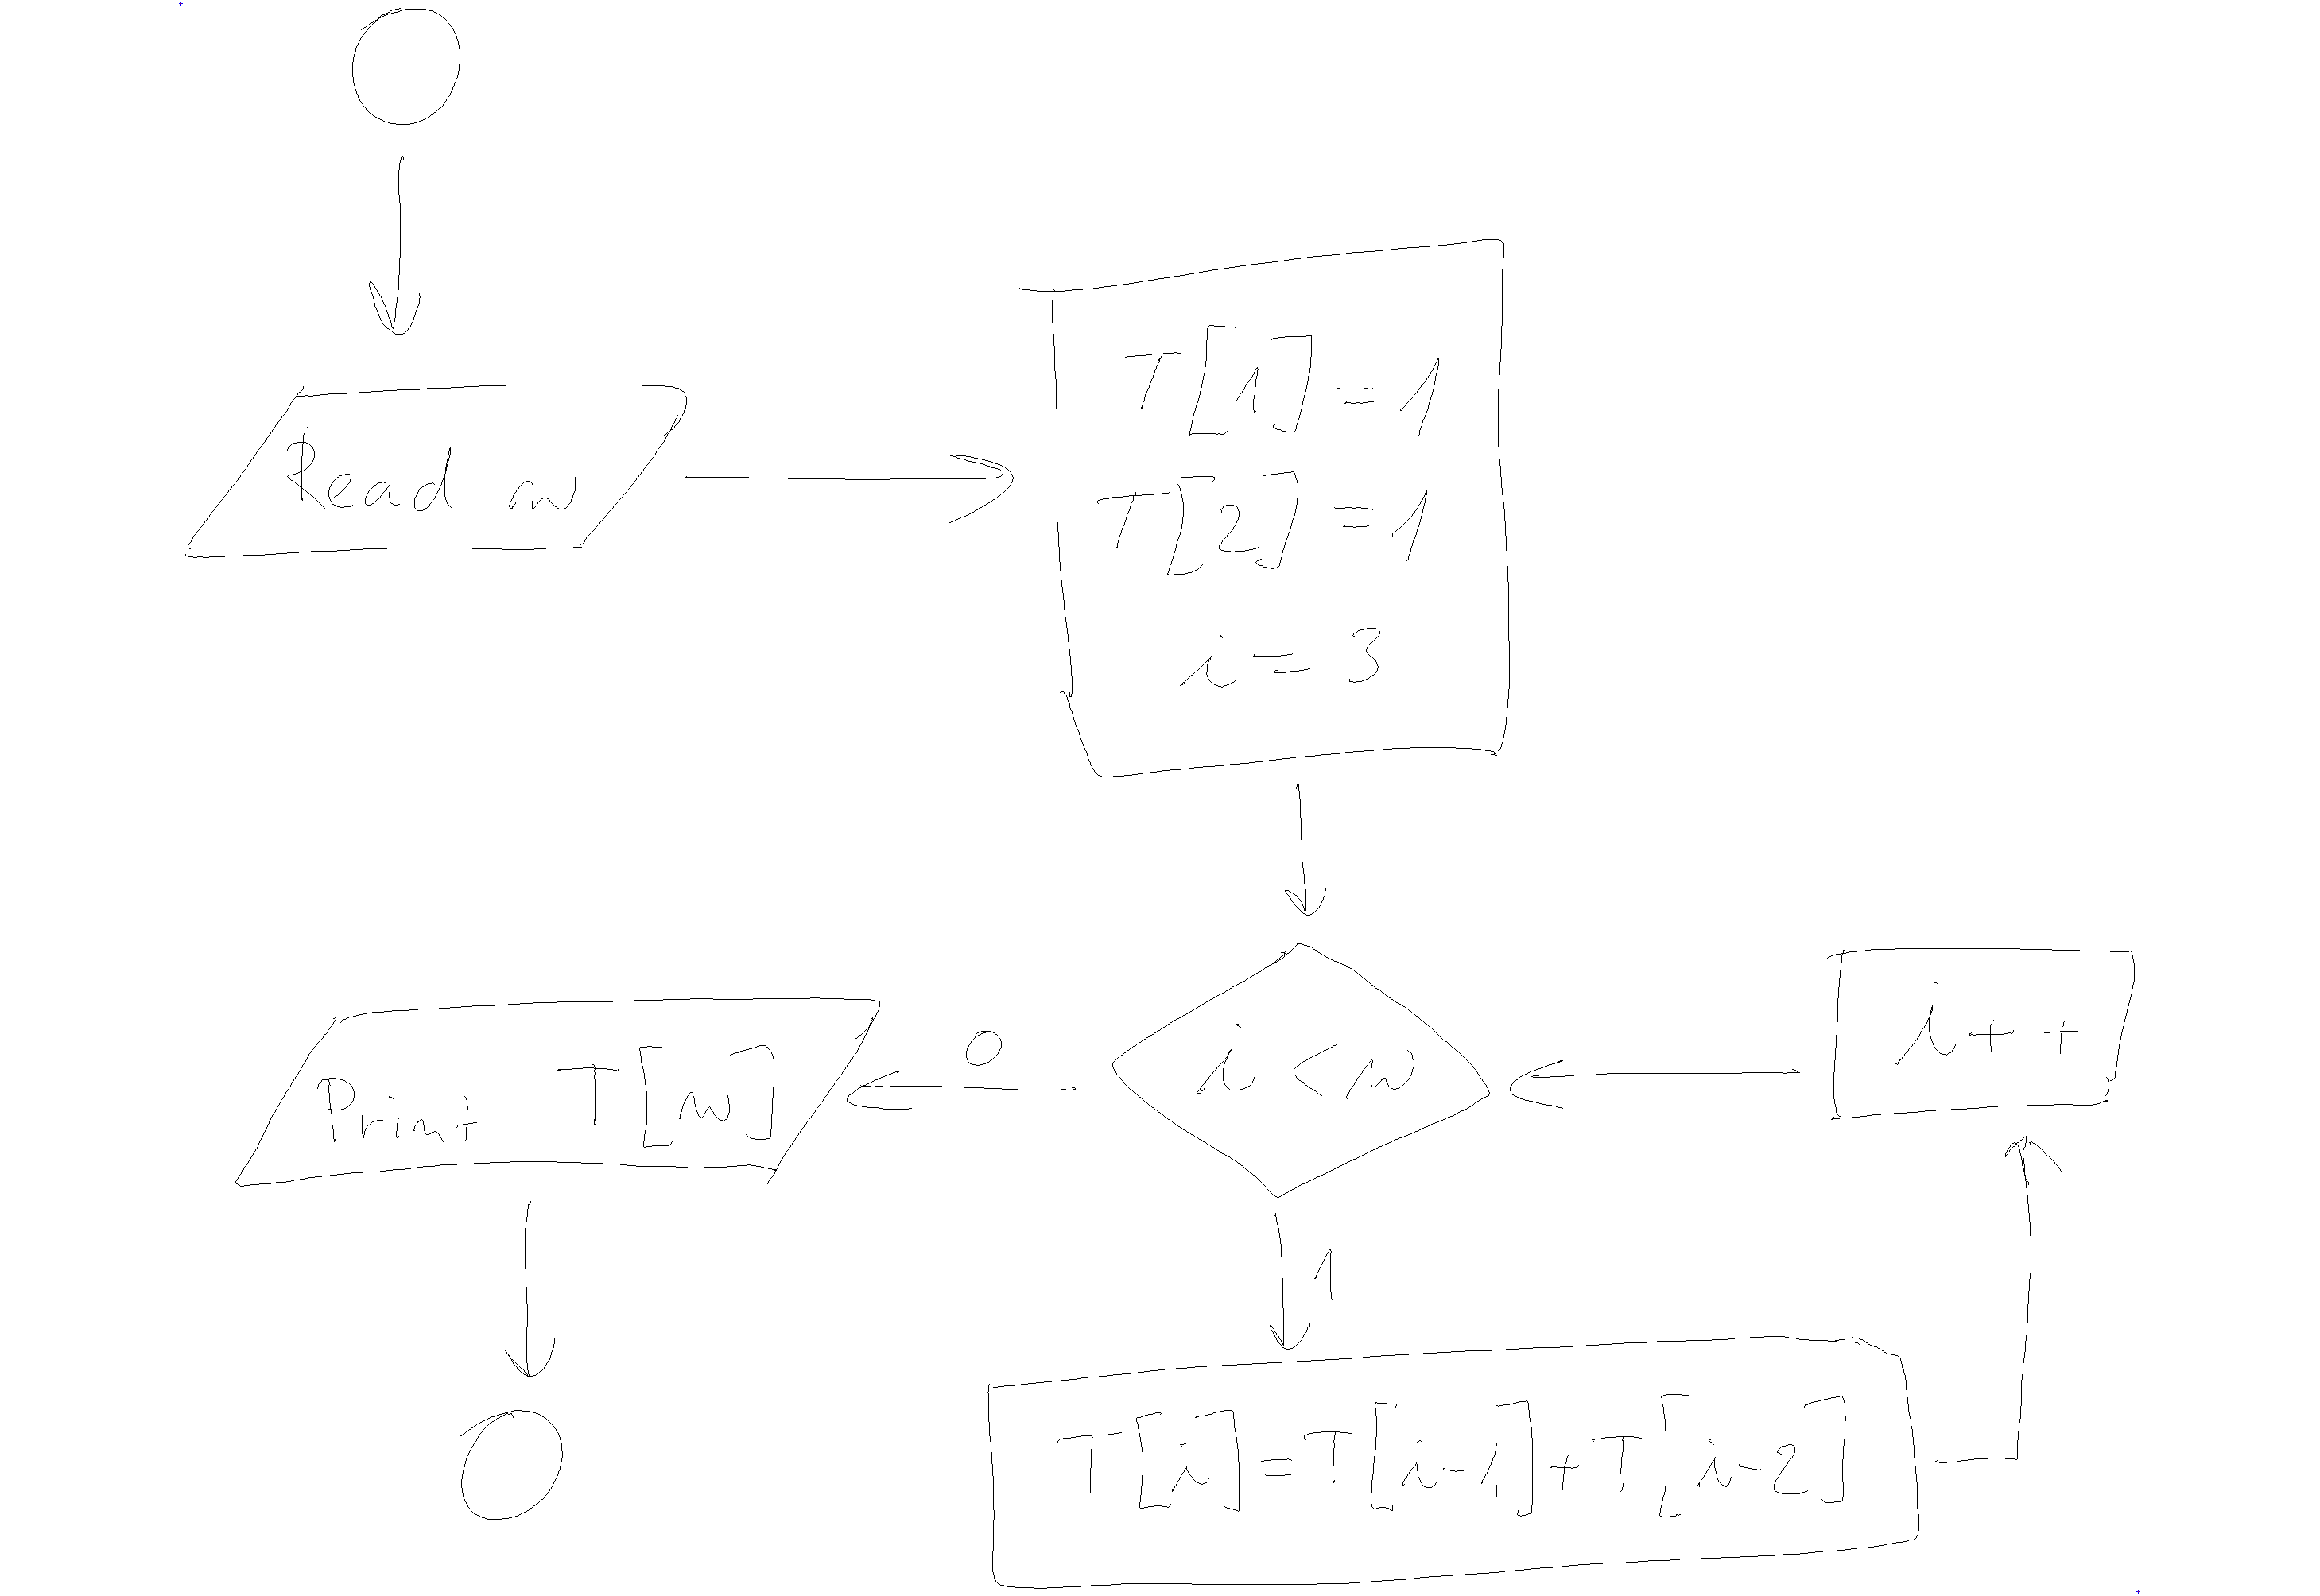 Read n
T[1] = 1
T[2] = 1
i = 3
i < n
0
Print T[n]
1
T[i] = T[i-1] + T[i-2]
i++